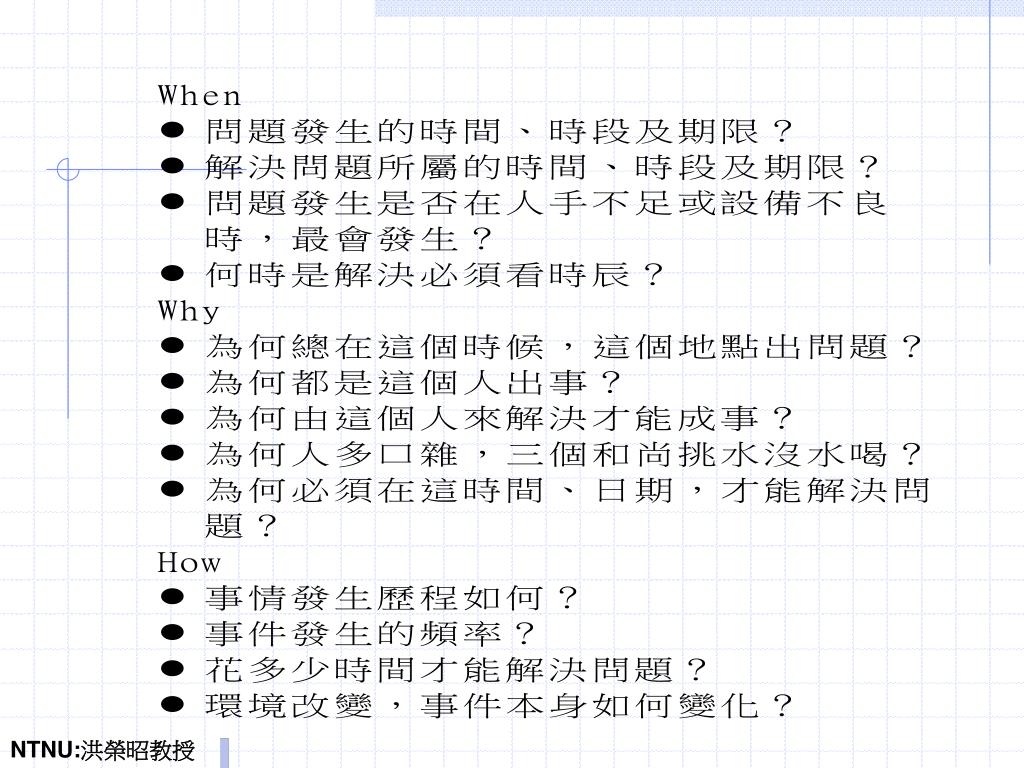 When
● 問題發生的時間、時段及期限？
● 解決問題所屬的時間、時段及期限？
● 問題發生是否在人手不足或設備不良
時，最會發生？
● 何時是解決必須看時辰？
Why
● 為何總在這個時候，這個地點出問題？
● 為何都是這個人出事？
● 為何由這個人來解決才能成事？
● 為何人多口雜，三個和尚挑水沒水喝？
● 為何必須在這時間、日期，才能解決問
題？
How
● 事情發生歷程如何？
● 事件發生的頻率？
● 花多少時間才能解決問題？
● 環境改變，事件本身如何變化？
NTNU:洪榮昭教授